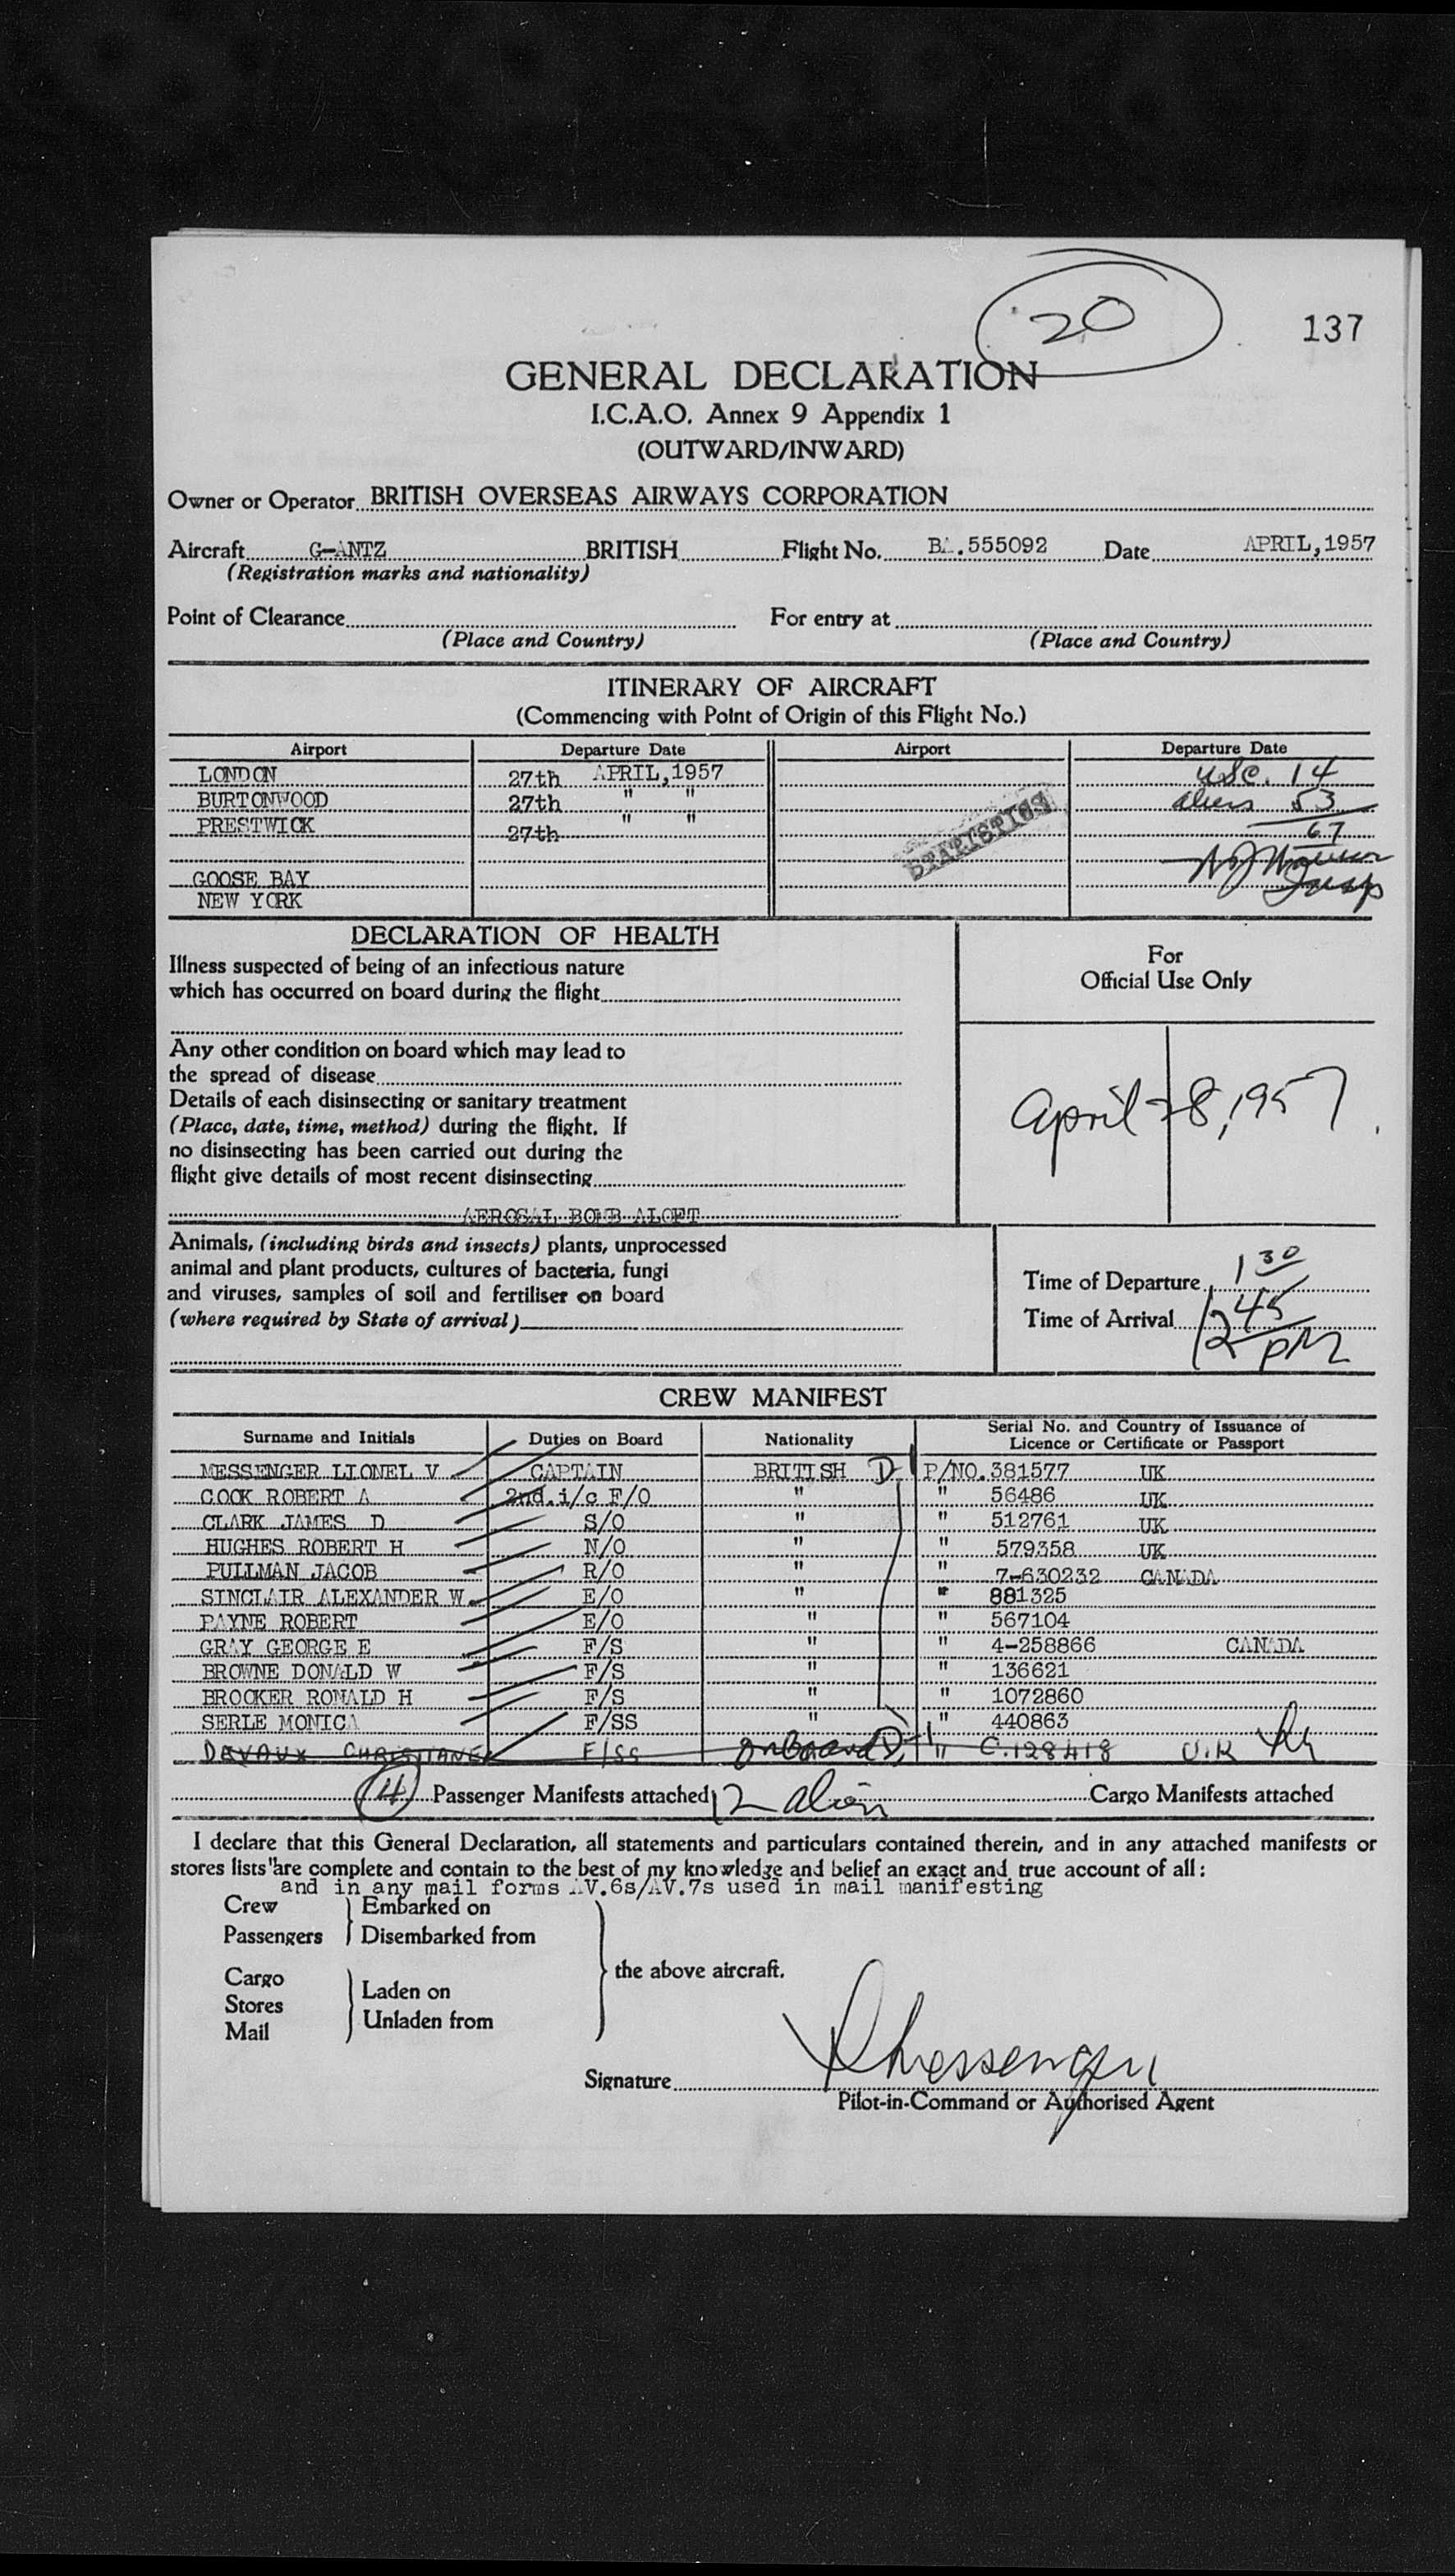 20
137
GENERAL DECLARATION
I.C.A.O. Annex 9 Appendix 1
(OUTWARD/INWARD)
Owner or Operator BRITISH OVERSEAS AIRWAYS CORPORATION
Aircraft G-ANTZ BRITISH Flight No. BA.555092 Date APRIL,1957
(Registration marks and nationality)
Point of Clearance For entry at
(Place and Country) (Place and Country)
ITINERARY OF AIRCRAFT
(Commencing with Point of Origin of this Flight No.)
Airport Departure Date Airport Departure Date
LONDON 27th APRIL,1957 USC. 14
BURTONWOOD 27th " " aliens 53
PRESTWICK 27th " " 67
STATISTICS
Insp
GOOSE BAY
NEW YORK
DECLARATION OF HEALTH
Illness suspected of being of an infectious nature
which has occurred on board during the flight
For
Official Use Only
Any other condition on board which may lead to
the spread of disease
Details of each disinsecting or sanitary treatment
(Place, date, time, method) during the flight. If
no disinsecting has been carried out during the
flight give details of most recent disinsecting
AEROSAL BOMB ALOFT
April 28, 1957
Animals, (including birds and insects) plants, unprocessed
animal and plant products, cultures of bacteria, fungi
and viruses, samples of soil and fertiliser on board
(where required by State of arrival)
Time of Departure 1 30
Time of Arrival 12 45 PM
CREW MANIFEST
Surname and Initials Duties on Board Nationality Serial No. and Country of Issuance of Licence or Certificate or Passport
MESSENGER LIONEL V CAPTAIN BRITISH D-1 P/NO. 381577 UK
COOK ROBERT A 2nd. i/c F/O " " 56486 UK
CLARK JAMES D S/O " " 512761 UK
HUGHES ROBERT H N/O " " 579358 UK
PULLMAN JACOB R/O " " 7-630232 CANADA
SINCLAIR ALEXANDER W. E/O " " 881325
PAYNE ROBERT E/O " " 567104
GRAY GEORGE E F/S " " 4-258866 CANADA
BROWNE DONALD W F/S " " 136621
BROOKER RONALD H F/S " " 1072860
SERLE MONICA F/SS " " 440863
DEVAUX CHRISTIANE F/SS onboard D-1 " C.128418 U.K
4 Passenger Manifests attached 12 alien Cargo Manifests attached
I declare that this General Declaration, all statements and particulars contained therein, and in any attached manifests or
stores lists"are complete and contain to the best of my knowledge and belief an exact and true account of all:
and in any mail forms AV.6s/AV.7s used in mail manifesting
Crew Embarked on
Passengers Disembarked from
the above aircraft.
Cargo
Stores Laden on
Mail Unladen from
Signature Messenger
Pilot-in-Command or Authorised Agent